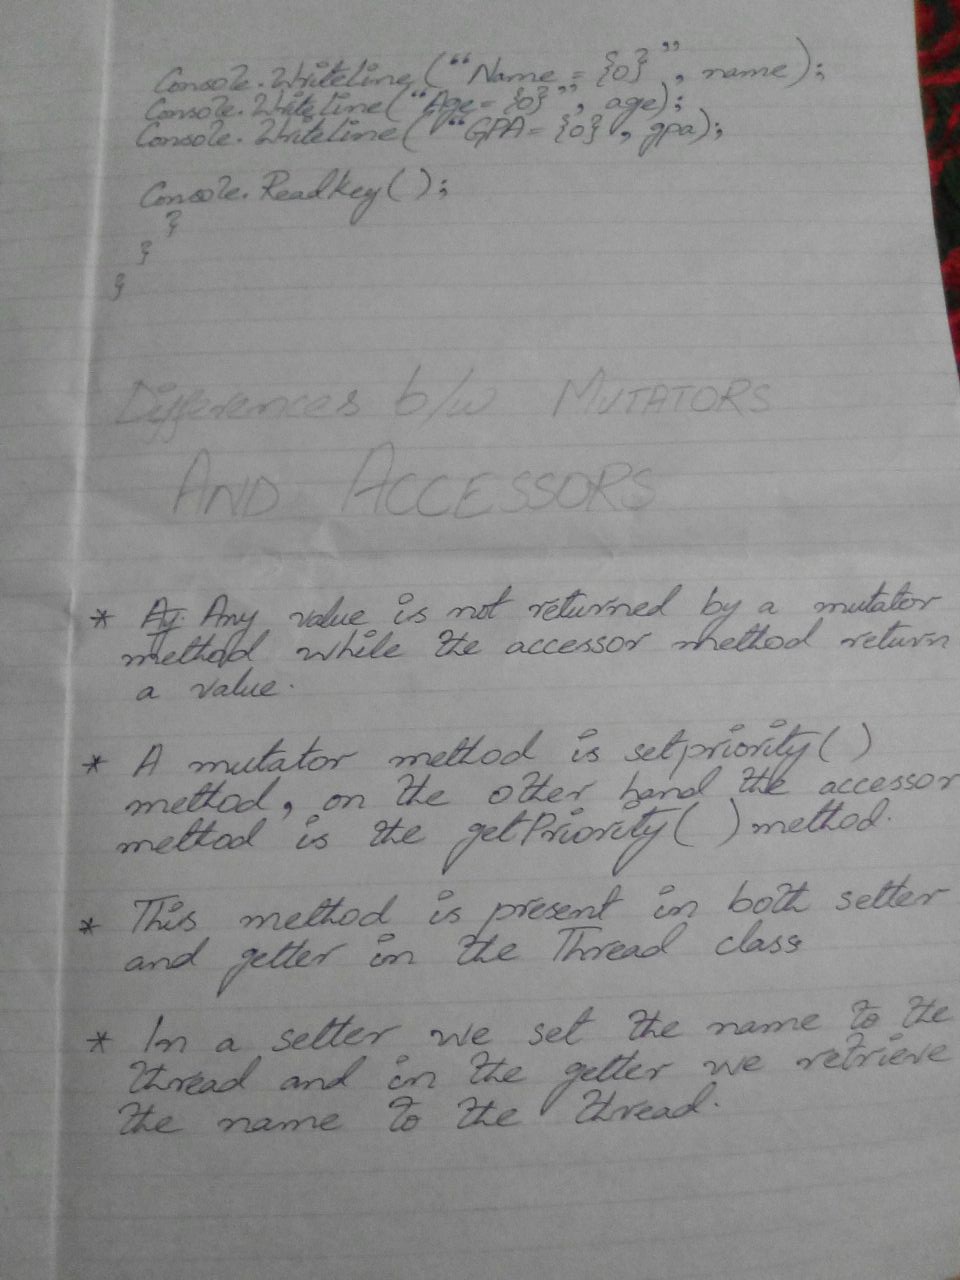 Console.WriteLine ("Name = {0}", name);
Console.WriteLine("Age= {0}", age);
Console.WriteLine ("GPA= {0}", gpa);
Console.ReadKey();
}
}
}
Differences b/w MUTATORS
AND ACCESSORS
* Ay. Any value is not returned by a mutator
method while the accessor method return
a value.
* A mutator method is setpriority()
method, on the other hand the accessor
method is the getPriority() method.
* This method is present in both setter
and getter in the Thread class
* In a setter we set the name to the
thread and in the getter we retrieve
the name to the thread.